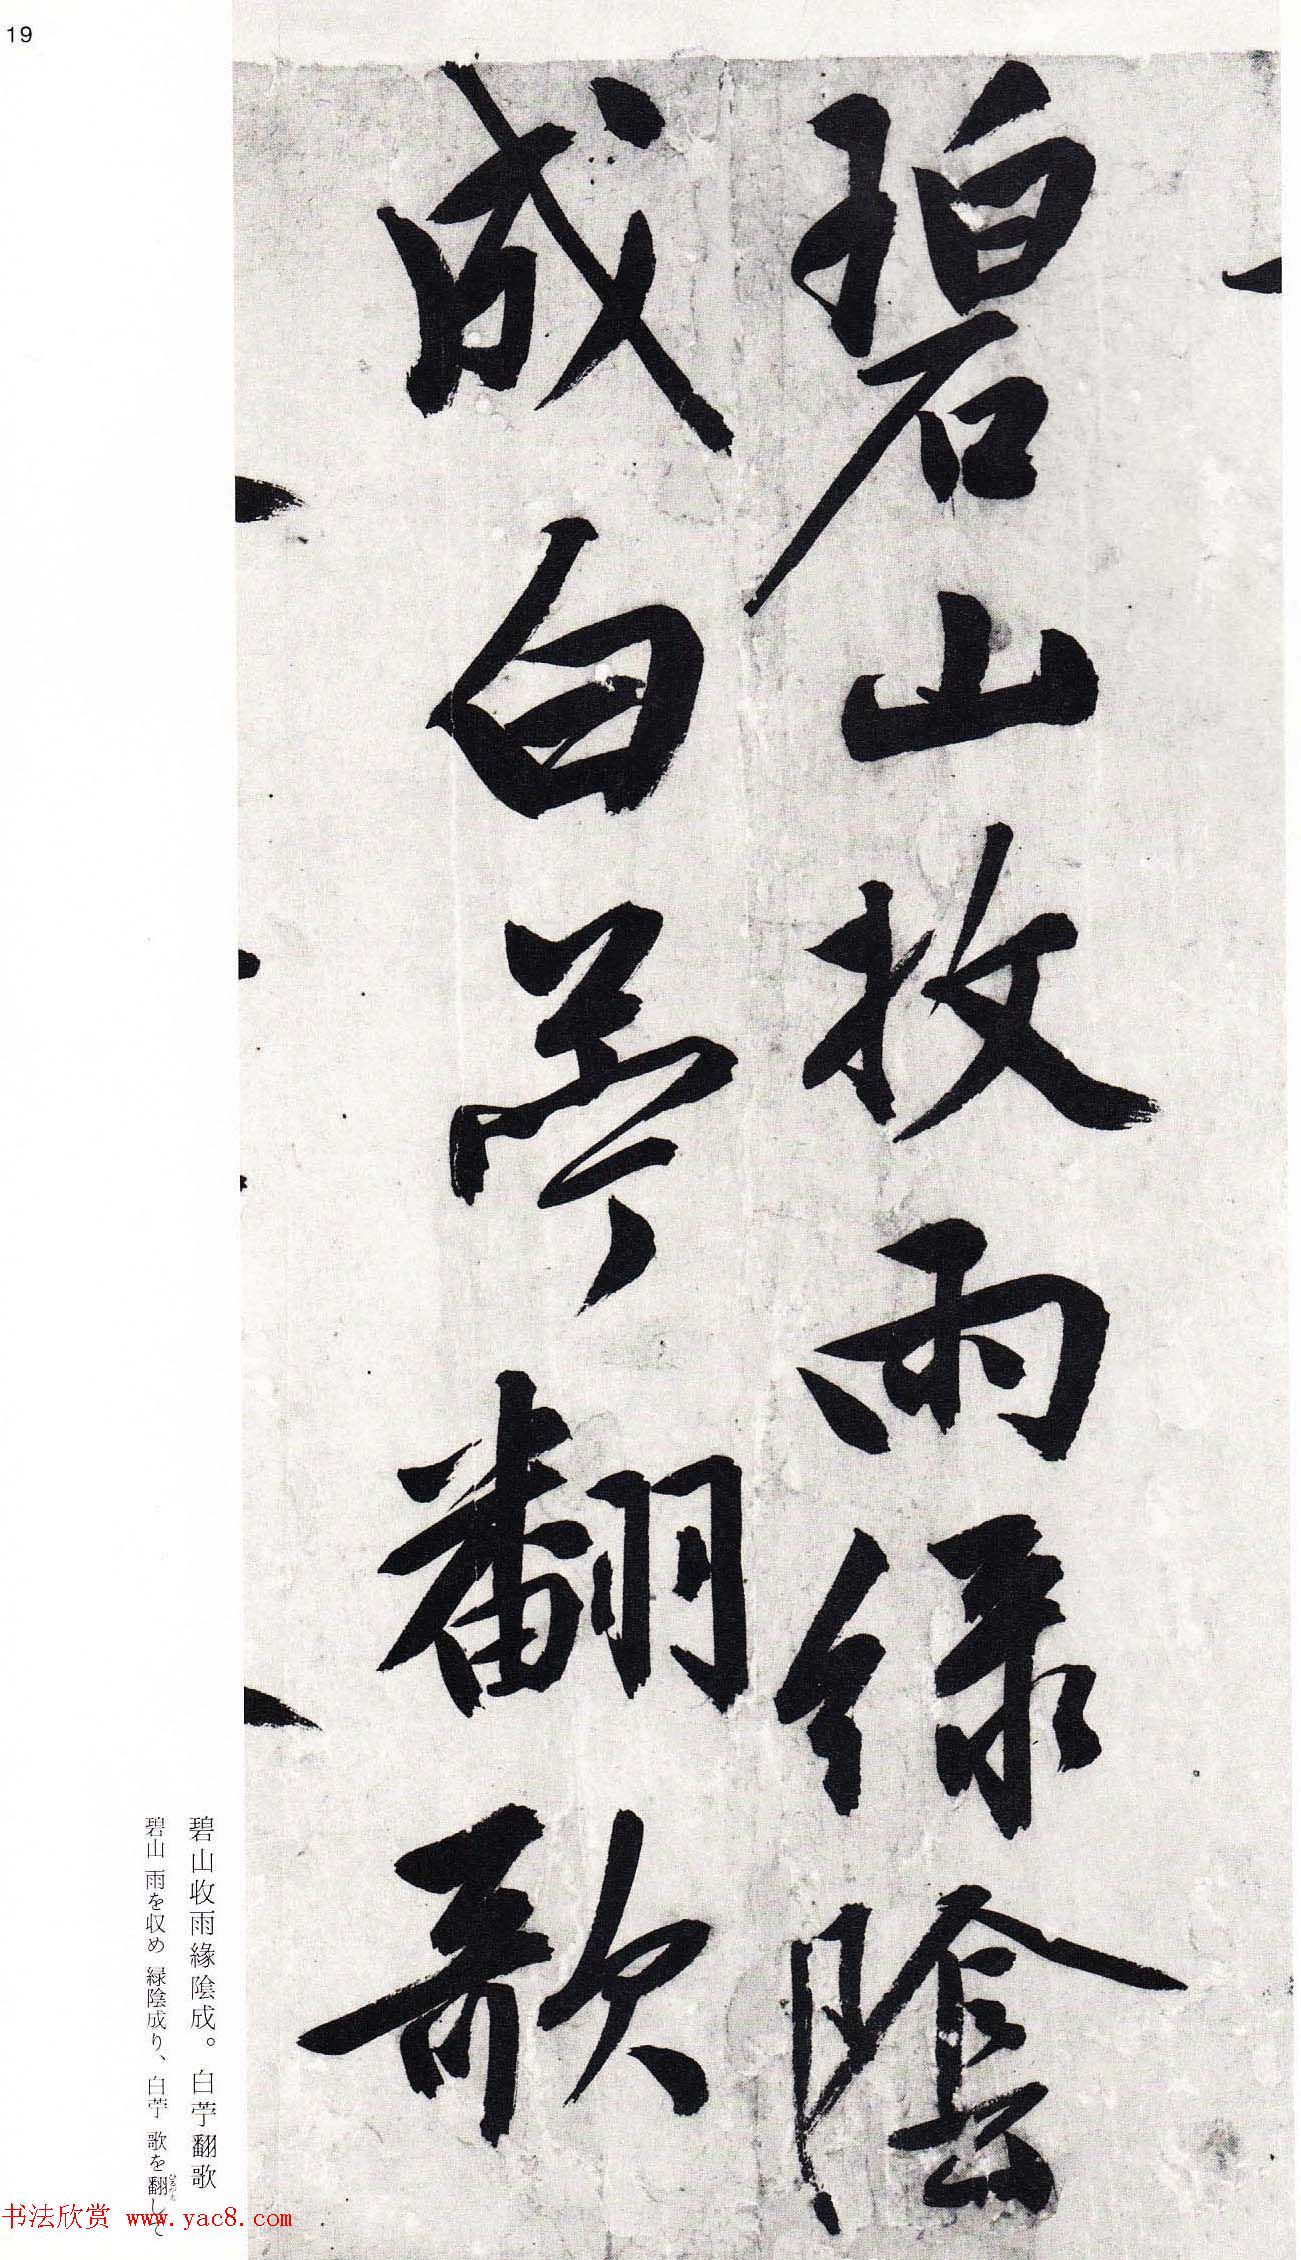 19
碧山收雨緑陰
成白苧翻歌
碧山收雨緣陰成。白苧翻歌
碧山 雨を収め 緑陰成り、白苧 歌を翻して
书法欣赏 www.yac8.com